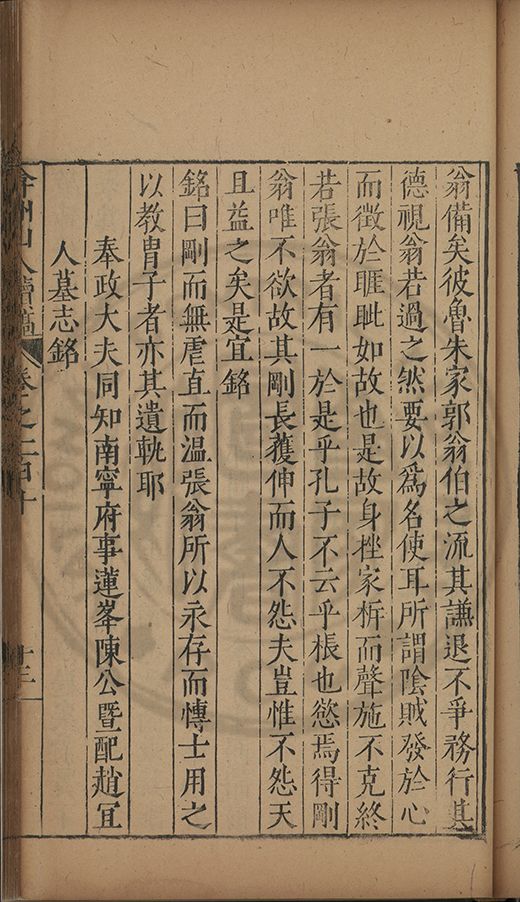 翁備矣彼魯朱家郭翁伯之流其謙退不爭務行其
德視翁若過之然要以爲名使耳所謂陰賊發於心
而徵於睚眦如故也是故身桎家析而聲施不克終
若張翁者有一於是乎孔子不云乎棖也慾焉得剛
翁唯不欲故其剛長獲伸而人不怨夫豈惟不怨天
且益之矣是宜銘
銘曰剛而無虐直而溫張翁所以永存而慱士用之
以教胄子者亦其遺軌耶
奉政大夫同知南寧府事蓮峯陳公暨配趙宜
人墓志銘
弇州山人續稿 卷之一百十 十三